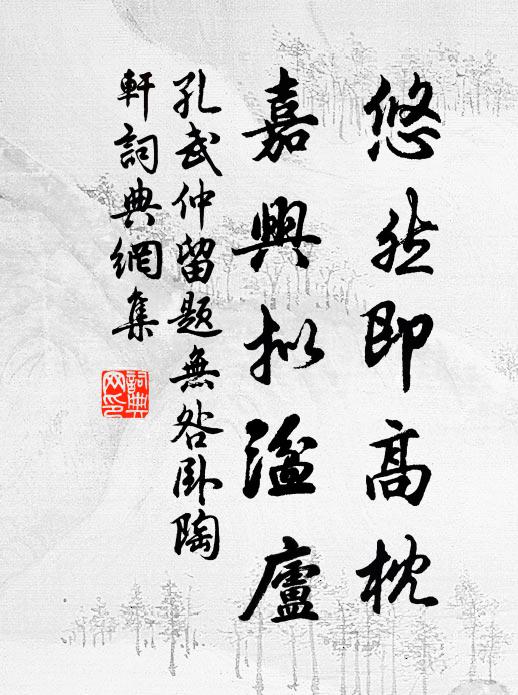 悠然即高枕
嘉興拟溢廬
孔武仲留題無咎卧陶
軒詞典網集
詞典
网印